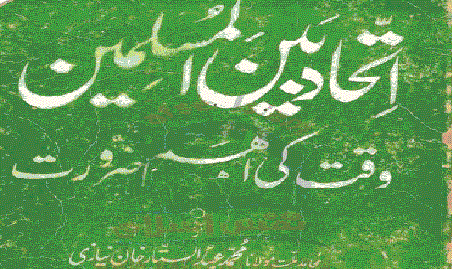 اتحاد بین المسلمین
وقت کی اہم ضرورت
مجاہد ملت مولانا محمد عبدالستار خان نیازی